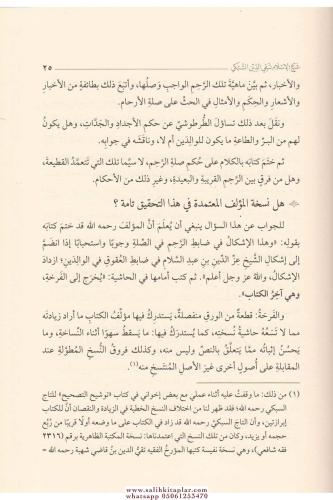 شيخ الإسلام تقي الدين السبكي
٢٥
والأخبار، ثم بيَّن ماهيَّةَ تلك الرَّحِم الواجبِ وَصلُها، وأتبَعَ ذلك بطائفةٍ من الأخبار
والأشعار والحِكَم والأمثال في الحثِّ على صلةِ الأرحام.
ونقَل بعد ذلك تساؤلَ الطُّرطوشيِّ عن حكمِ الأجدادِ والجَدَّات، وهل يكونُ
لهم من البرِّ والطاعةِ ما يكون للوالدَينِ أم لا، وناقَشَه في جوابِه.
ثم ختَمَ كتابَه بالكلام على حُكمِ صلةِ الرَّحِم، لا سيَّما تلك التي تَتعمَّدُ القطيعةَ،
وهل من فرقٍ بين الرَّحِمِ القريبةِ والبعيدةِ، وغيرِ ذلك من الأحكام.
هل نسخة المؤلف المعتمدة في هذا التحقيق تامة ؟
للجواب عن هذا السؤال ينبغي أن يُعلَمَ أنَّ المؤلفَ رحمه الله قد ختَمَ كتابَه
بقوله: «وهذا الإشكالُ في ضابطِ الرَّحِم في الصِّلةِ وجوبًا واستحبابًا إذا انضَمَّ
إلى إشكالِ الشَّيخِ عزِّ الدِّين بنِ عبدِ السلامِ في ضابطِ العُقوقِ في الوالدَينِ؛ ازداد
الإشكالُ، واللهُ عز وجل أعلم». ثم كتب أمامها في الحاشية: «يُخرَج إلى الفَرخةِ،
وهي آخِرُ الكتاب».
والفَرخةُ: قطعةٌ من الورقِ منفصلةٌ، يَستدرِكُ فيها مؤلِّفُ الكتابِ ما أراد زيادتَه
مما لا تَسَعُهُ حاشيةُ نُسخَتِه، كما يُستدرَكُ فيها: ما يَسقطُ سهوًا أثناءَ النِّساخةِ، وما
يَحسُنُ إثباتُه ممَّا يَتعلَّقُ بالنصِّ وليس منه، وكذلك فروقُ النُّسَخِ المُطوَّلةِ عند
المقابلةِ على أصولٍ أخرى غيرِ الأصلِ المُنتَسَخِ منه(١).
(١) من ذلك: ما وقفتُ عليه أثناءَ عملي مع بعض إخواني في كتاب «توشيح التصحيح» للتاج
السبكي رحمه الله؛ فقد ظهر لنا من اختلاف النسخ الخطية في الزيادة والنقصان أنَّ للكتاب
إبرازتين، وأن التاجَ السبكيَّ رحمه الله قد زاد في الكتاب على ما وضعه أولًا قريبًا من رُبُعِ
حجمه أو يزيد، وكان من تلك النسخ التي اعتمدناها: نسخةُ المكتبة الظاهرية برقم (٢٣١٦
فقه شافعي)، وهي نسخة نفيسة كتبها المؤرخُ الفقيه تقيُّ الدين بنُ قاضي شهبة رحمه الله =
www.salihkitaplar.com
whatsapp 05061253470